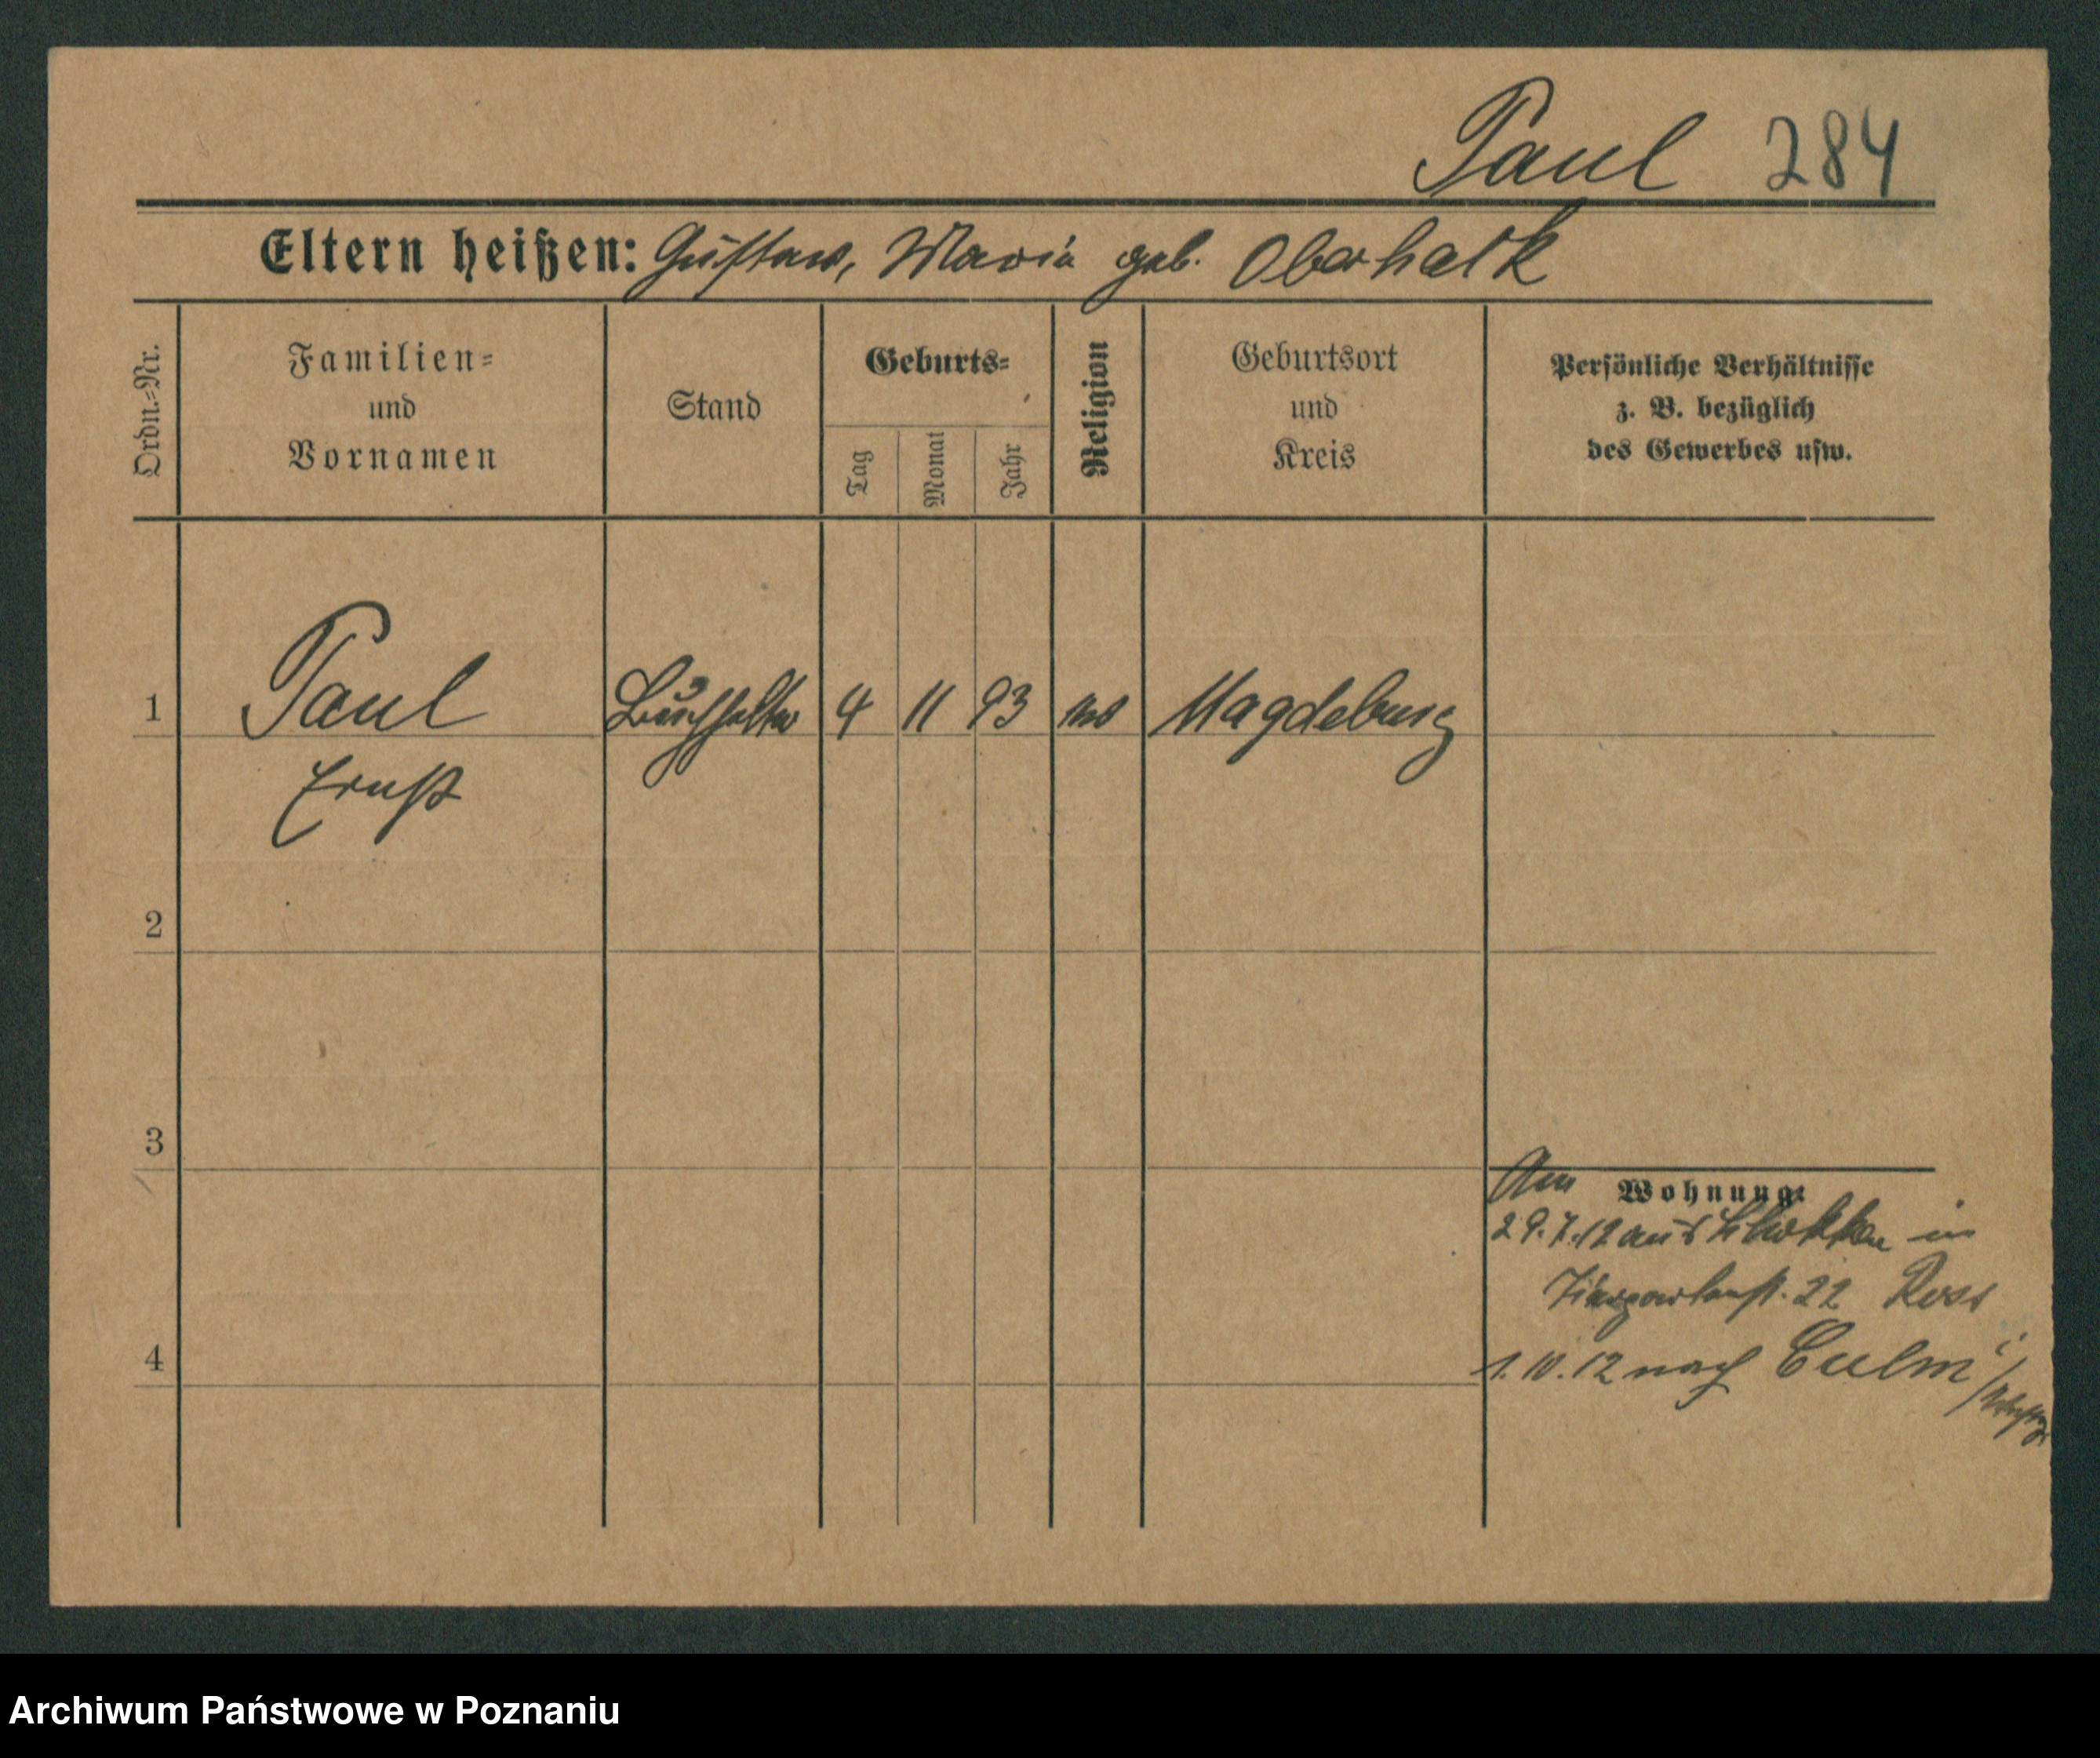 Paul 284
Eltern heißen: Gustav, Maria geb. Oberhalk
Ordn.-Nr.
Familien-
und
Vornamen
Stand
Geburts-
Tag
Monat
Jahr
Religion
Geburtsort
und
Kreis
Persönliche Verhältnisse
z. B. bezüglich
des Gewerbes usw.
1 Paul Buchhalter 4 11 93 Magdeburg
Ernst
2
3
Am
Wohnung:
29.7.12 aus in
22 Ross
4 1.10.12 nach Culm i/
Archiwum Państwowe w Poznaniu